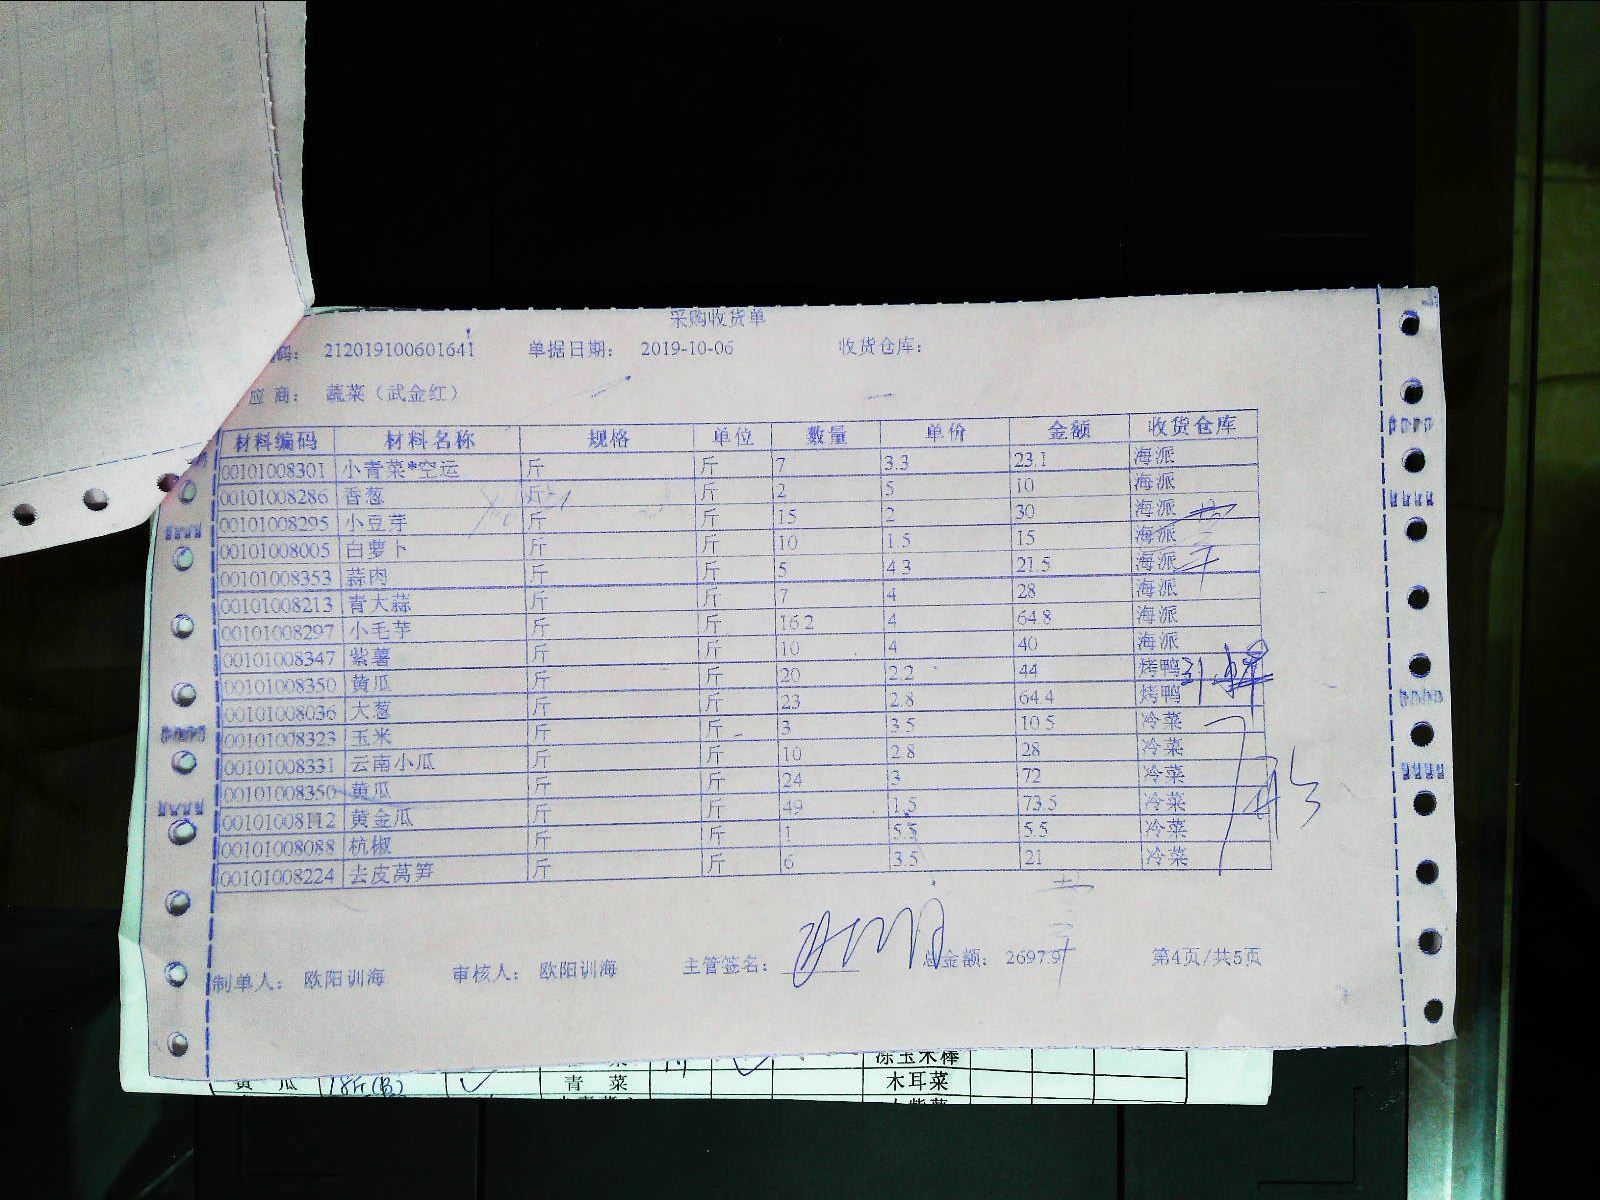 采购收货单
码： 212019100601641 单据日期： 2019-10-06 收货仓库：
应商： 蔬菜（武金红）
材料编码 材料名称 规格 单位 数量 单价 金额 收货仓库
00101008301 小青菜*空运 斤 斤 7 3.3 23.1 海派
00101008286 香葱 斤 斤 2 5 10 海派
00101008295 小豆芽 斤 斤 15 2 30 海派
00101008005 白萝卜 斤 斤 10 1.5 15 海派
00101008353 蒜肉 斤 斤 5 4.3 21.5 海派
00101008213 青大蒜 斤 斤 7 4 28 海派
00101008297 小毛芋 斤 斤 16.2 4 64.8 海派
00101008347 紫薯 斤 斤 10 4 40 海派
00101008350 黄瓜 斤 斤 20 2.2 44 烤鸭
00101008036 大葱 斤 斤 23 2.8 64.4 烤鸭
00101008323 玉米 斤 斤 3 3.5 10.5 冷菜
00101008331 云南小瓜 斤 斤 10 2.8 28 冷菜
00101008350 黄瓜 斤 斤 24 3 72 冷菜
00101008112 黄金瓜 斤 斤 49 1.5 73.5 冷菜
00101008088 杭椒 斤 斤 1 5.5 5.5 冷菜
00101008224 去皮莴笋 斤 斤 6 3.5 21 冷菜
制单人： 欧阳训海 审核人： 欧阳训海 主管签名： 总金额： 2697.9 第4页/共5页
冻玉米棒
黄 瓜 18斤 青 菜 木耳菜